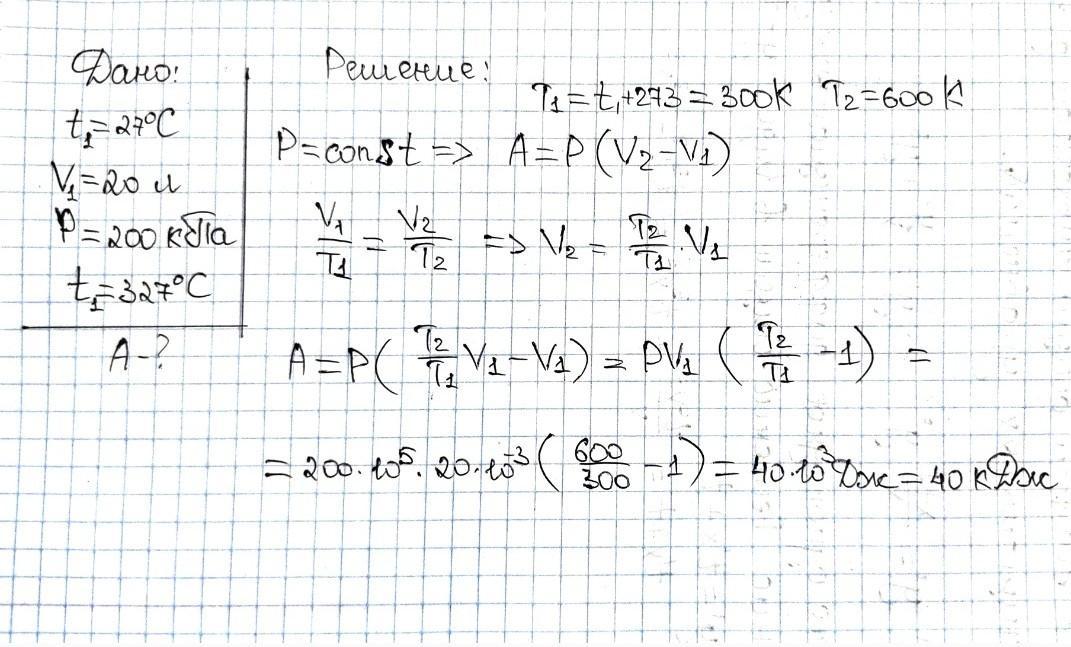 Дано:
t₁=27°C
V₁=20 л
P=200 кПа
t₁=327°C
A-?
Решение:
T₁=t₁+273=300K T₂=600K
P=const => A=P(V₂-V₁)
V₁/T₁ = V₂/T₂ => V₂ = T₂/T₁·V₁
A=P(T₂/T₁ V₁-V₁) = PV₁(T₂/T₁ -1) =
= 200·10⁵·20·10⁻³(600/300 -1) = 40·10³Дж=40кДж